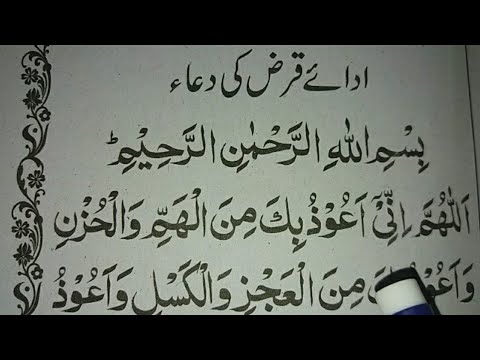 ادائے قرض کی دعاء
بِسْمِ اللهِ الرَّحْمٰنِ الرَّحِيْمِ ط
اَللّٰهُمَّ اِنِّیْٓ اَعُوْذُ بِكَ مِنَ الْهَمِّ وَالْحُزْنِ
مِنَ الْعَجْزِ وَالْكَسْلِ وَاَعُوْذُ